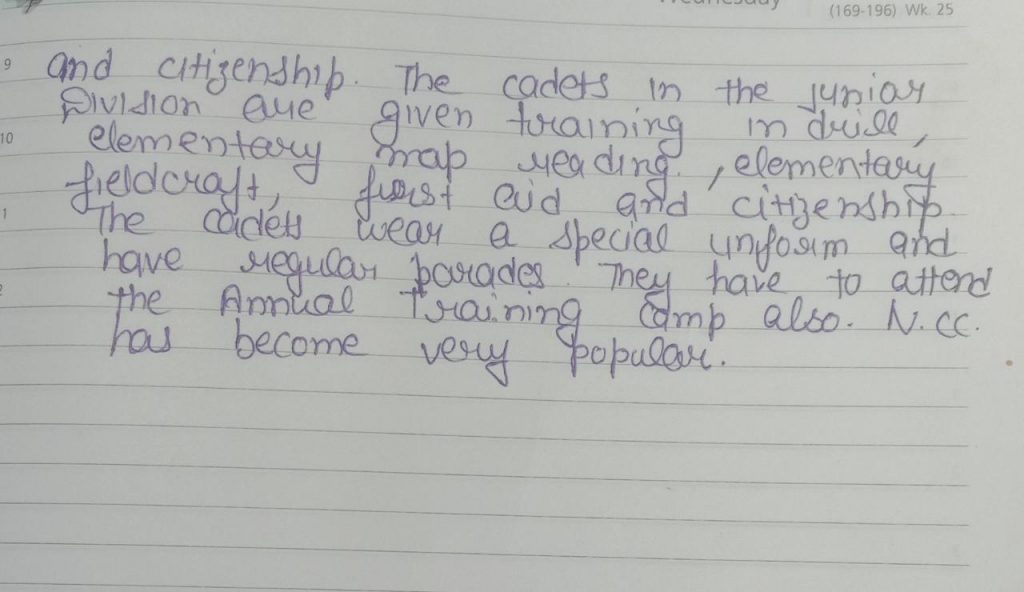 Wednesday
(169-196) Wk. 25
9 and citizenship. The cadets in the junior
Division are given training in drill,
10 elementary map reading. , elementary
fieldcraft, first aid and citizenship.
1 The cadets wear a special uniform and
have regular parades. They have to attend
2 the Annual Training Camp also. N.CC.
has become very popular.